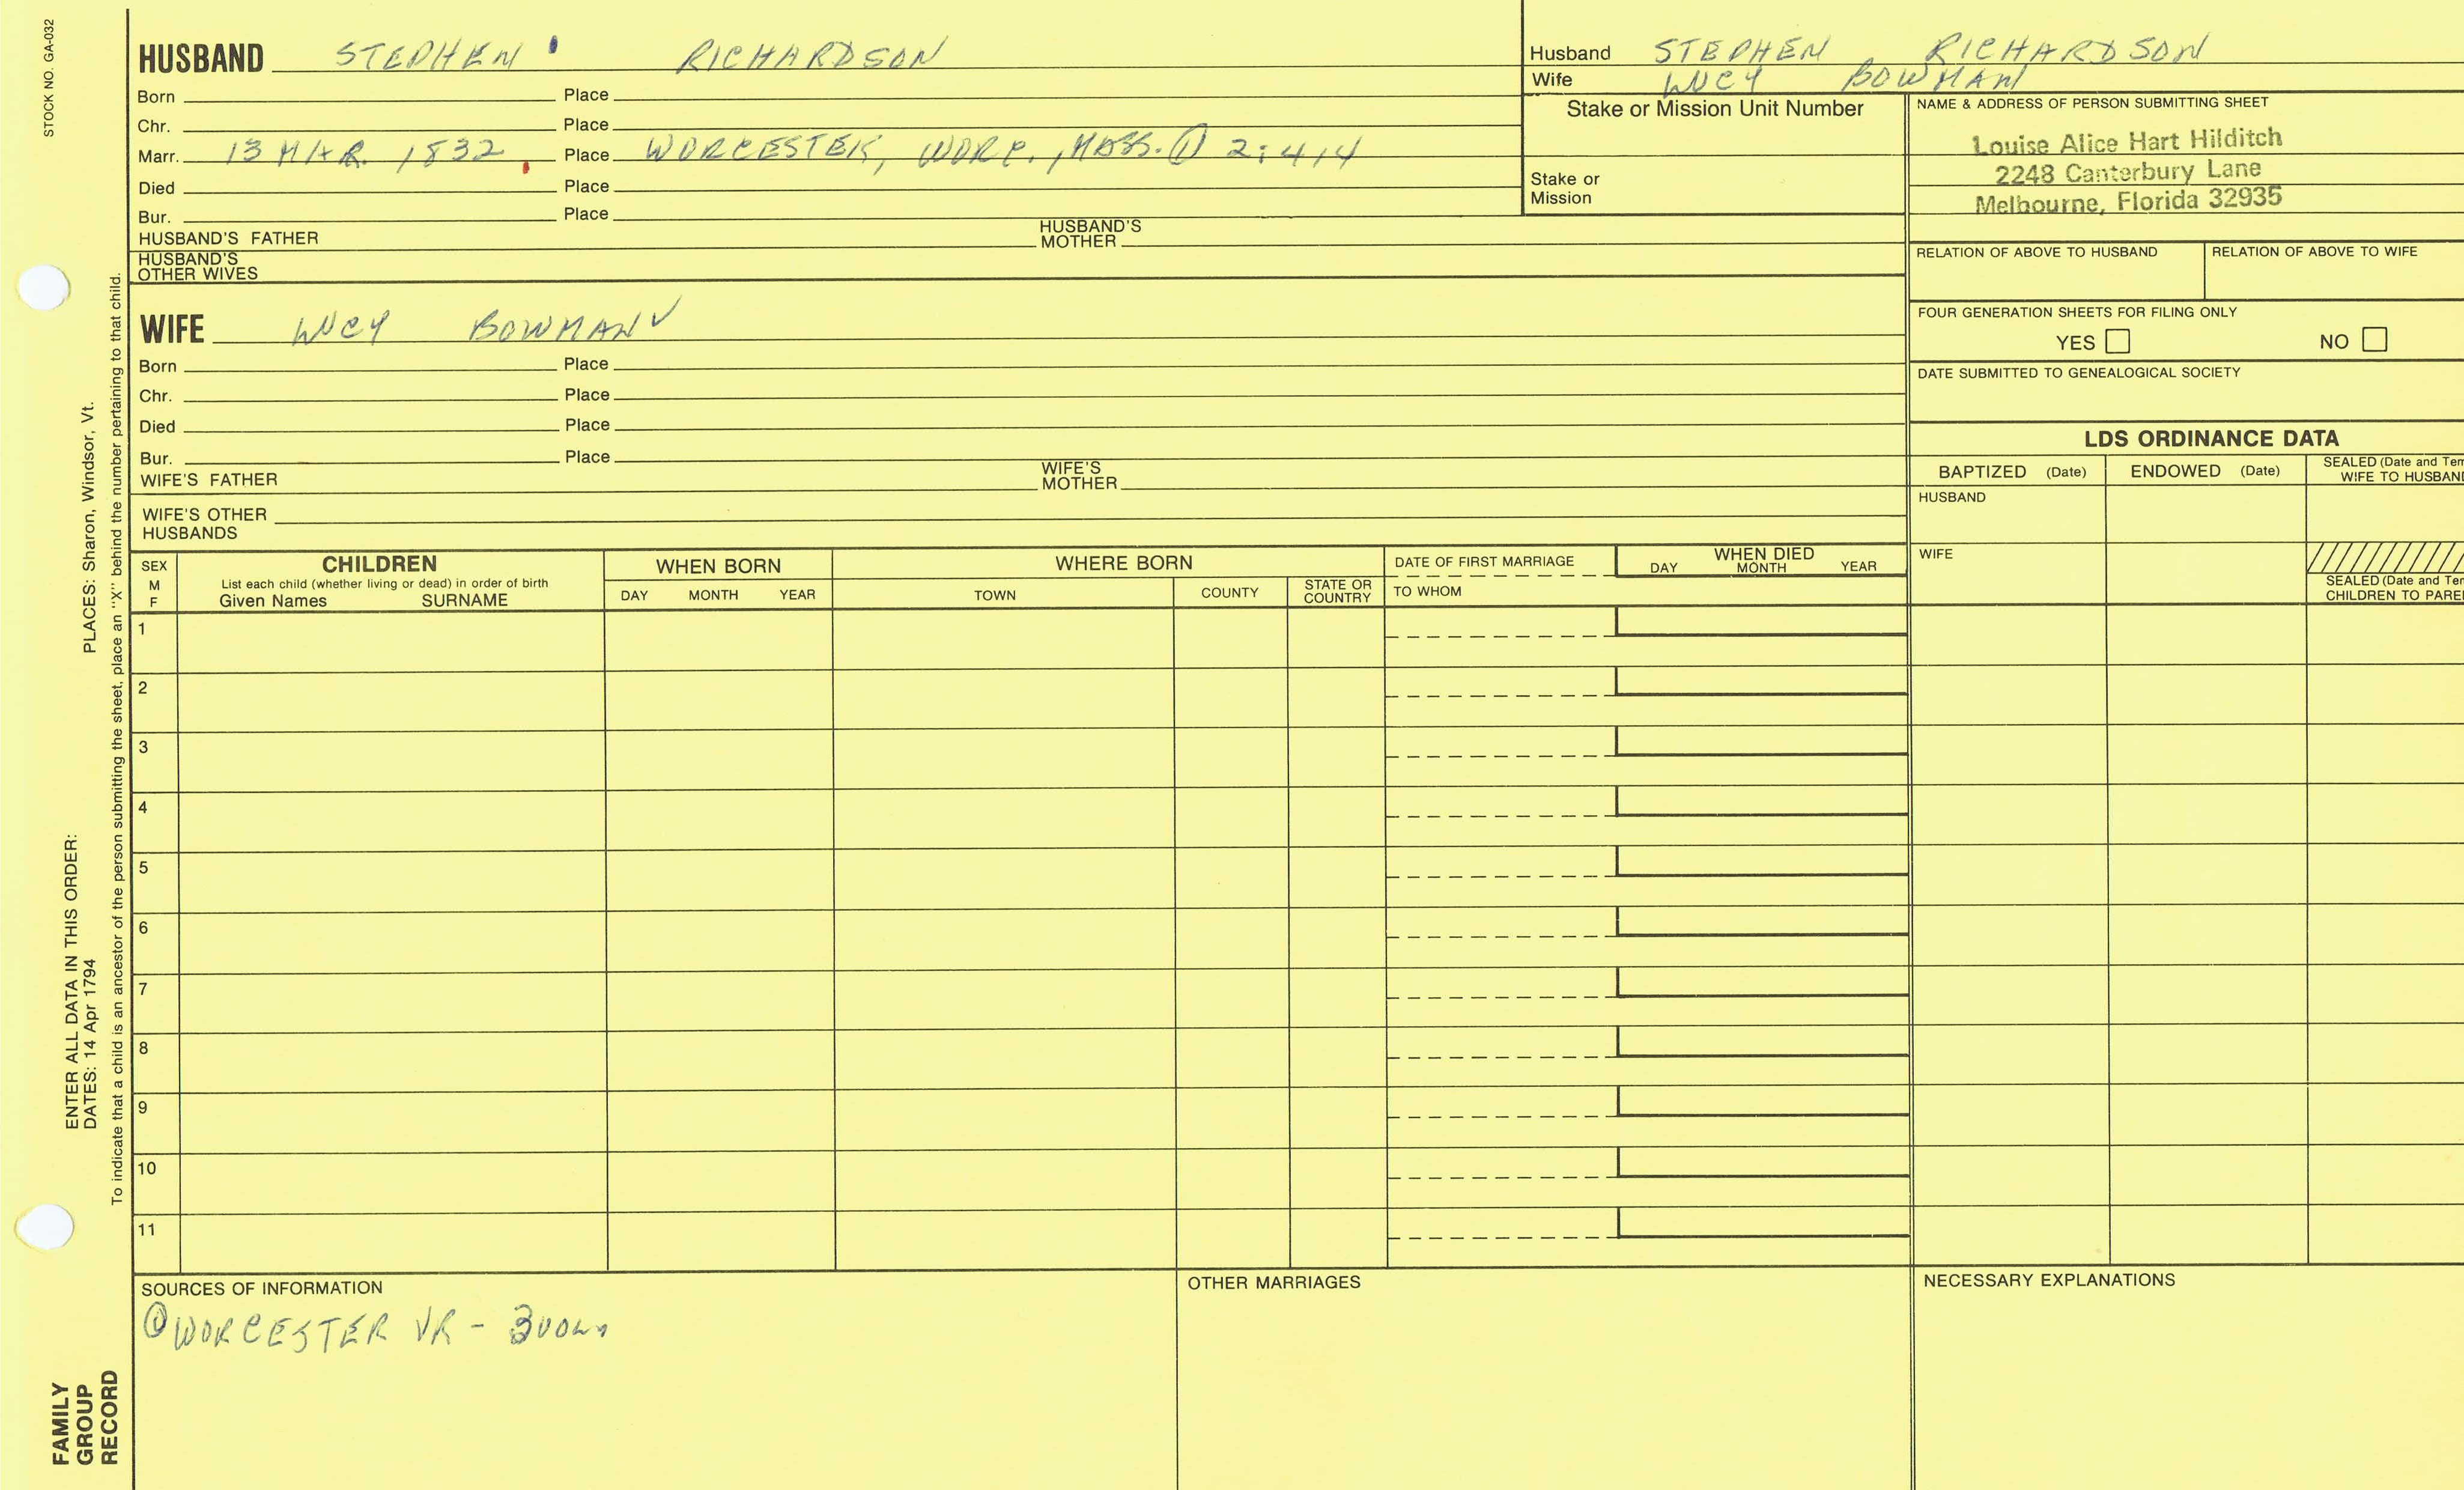 STOCK NO. GA-032
HUSBAND STEPHEN RICHARDSON
Born Place
Chr. Place
Marr. 13 MAR. 1832 Place WORCESTER, WORC., MASS. ① 2:414
Died Place
Bur. Place
HUSBAND'S FATHER HUSBAND'S MOTHER
HUSBAND'S OTHER WIVES
Husband STEPHEN RICHARDSON
Wife LUCY BOWMAN
Stake or Mission Unit Number
Stake or
Mission
NAME & ADDRESS OF PERSON SUBMITTING SHEET
Louise Alice Hart Hilditch
2248 Canterbury Lane
Melbourne, Florida 32935
RELATION OF ABOVE TO HUSBAND RELATION OF ABOVE TO WIFE
FOUR GENERATION SHEETS FOR FILING ONLY
YES NO
DATE SUBMITTED TO GENEALOGICAL SOCIETY
WIFE LUCY BOWMAN ✓
Born Place
Chr. Place
Died Place
Bur. Place
WIFE'S FATHER WIFE'S MOTHER
WIFE'S OTHER
HUSBANDS
LDS ORDINANCE DATA
BAPTIZED (Date) ENDOWED (Date) SEALED (Date and Tem
WIFE TO HUSBAN
HUSBAND
WIFE
SEALED (Date and Tem
CHILDREN TO PARE
SEX
M
F
CHILDREN
List each child (whether living or dead) in order of birth
Given Names SURNAME
WHEN BORN
DAY MONTH YEAR
WHERE BORN
TOWN COUNTY STATE OR COUNTRY
DATE OF FIRST MARRIAGE
TO WHOM
WHEN DIED
DAY MONTH YEAR
1
2
3
4
5
6
7
8
9
10
11
SOURCES OF INFORMATION
① WORCESTER VR -
OTHER MARRIAGES
NECESSARY EXPLANATIONS
ENTER ALL DATA IN THIS ORDER:
DATES: 14 Apr 1794 PLACES: Sharon, Windsor, Vt.
To indicate that a child is an ancestor of the person submitting the sheet, place an "X" behind the number pertaining to that child.
FAMILY
GROUP
RECORD